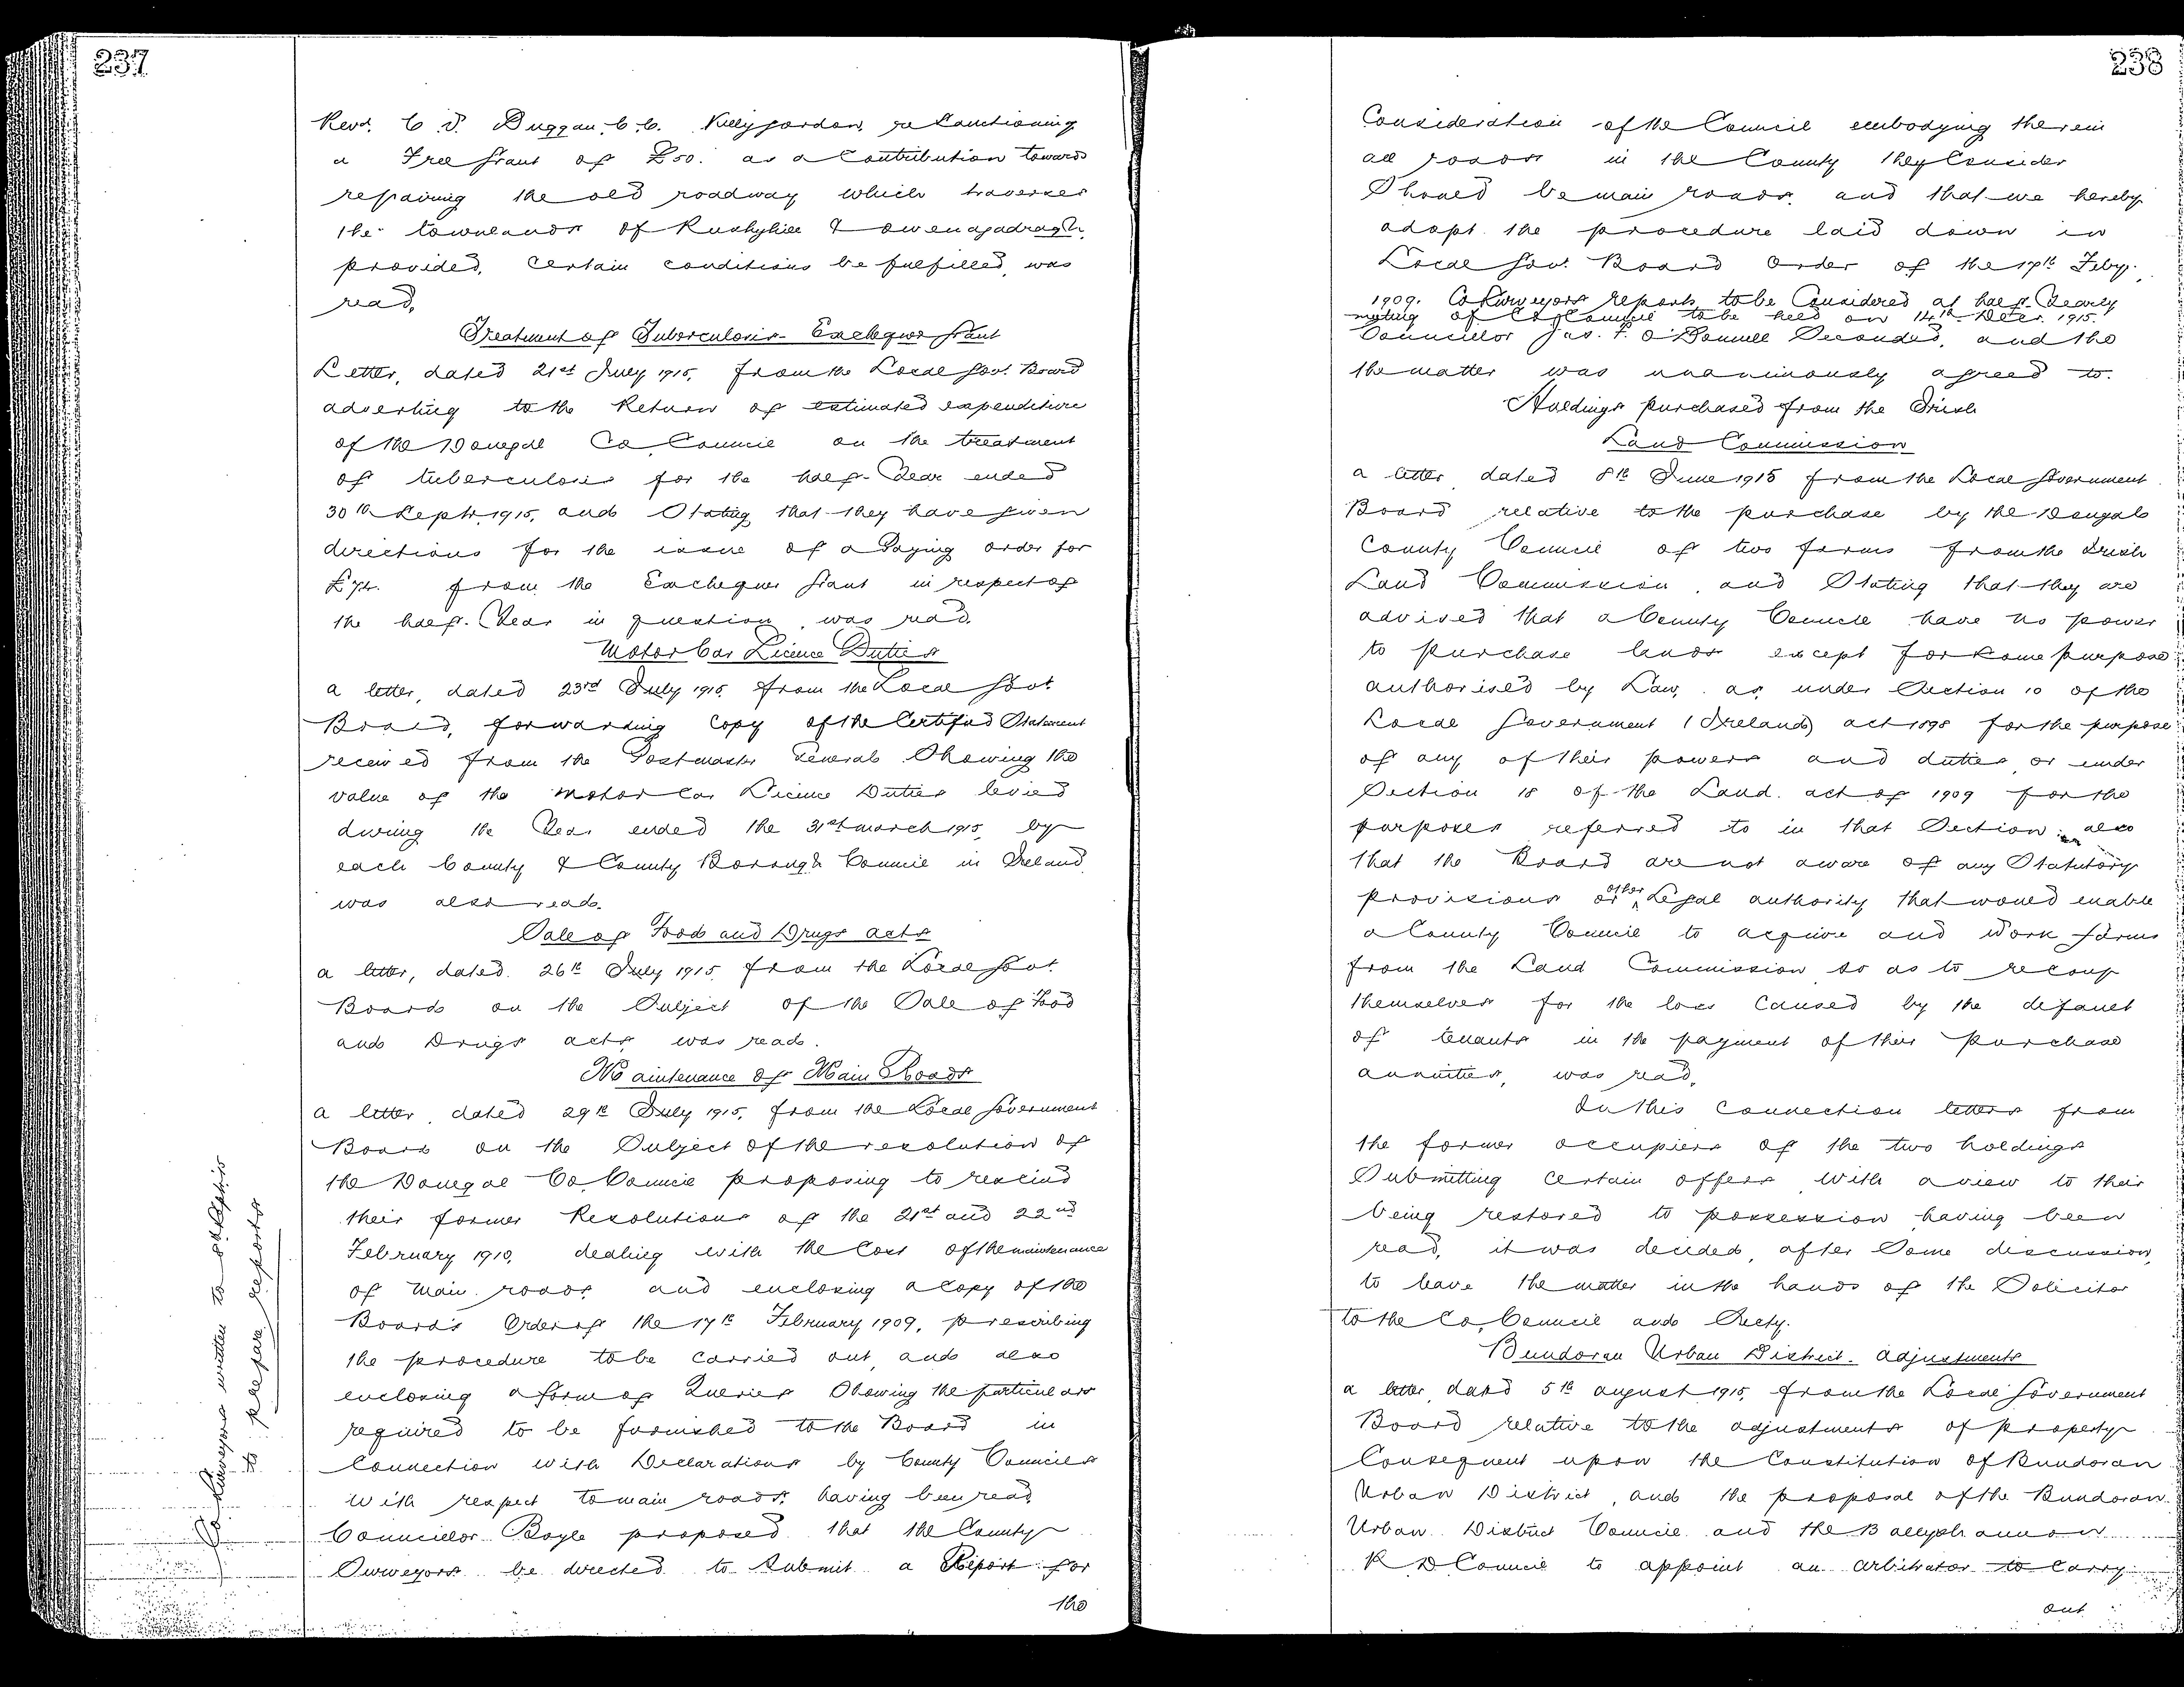 237
Revd. C. J. Duggan, C.C. Killygordon, re Sanctioning
a Free Grant of £50. as a Contribution towards
repairing the old roadway which traverses
the townlands of Rushyhill &
provided, certain conditions be fulfilled, was
read,
Treatment of Tuberculosis - Exchequer Grant
Letter, dated 21st July 1915, from the Local Govt. Board
adverting to the Return of estimated expenditure
of the Donegal Co. Council on the treatment
of tuberculosis for the half-Year ended
30th Septr. 1915, and Stating that they have given
directions for the issue of a Paying order for
from the Exchequer Grant in respect of
the half-Year in question, was read.
Motor Car Licence Duties
a letter, dated 23rd July 1915, from the Local Govt.
Board, forwarding Copy of the Certified Statement
received from the Postmaster General Showing the
value of the Motor Car Licence Duties levied
during the Year ended the 31st March 1915, by
each County & County Borough Council in Ireland
was also read.
Sale of Food and Drugs acts
a letter, dated 26th July 1915, from the Local Govt.
Board on the Subject of the Sale of Food
and Drugs acts was read.
Maintenance of Main Roads
a letter, dated 29th July 1915, from the Local Government
Board on the Subject of the resolution of
the Donegal Co. Council proposing to rescind
their former Resolutions of the 21st and 22nd
February 1910, dealing with the Cost of the maintenance
of main roads and enclosing a Copy of the
Board's Order of the 17th February 1909, prescribing
the procedure to be carried out, and also
enclosing a form of Queries Showing the particulars
required to be furnished to the Board in
Connection with Declarations by County Councils
with respect to main roads, having been read,
Councillor Boyle proposed that the County
Surveyors be directed to Submit a Report for
the
Co. Surveyors written to 8th
to prepare reports
238
Consideration of the Council embodying therein
all roads in the County they Consider
Should be main roads, and that we hereby
adopt the procedure laid down in
Local Govt. Board Order of the 17th Feby.
1909. Co. Surveyors reports to be Considered at half-Yearly
meeting of Co. Council to be held on 14th Decr. 1915.
Councillor Jas. F. O'Donnell Seconded, and the
the matter was unanimously agreed to.
Holdings purchased from the Irish
Land Commission
a letter dated 8th June 1915 from the Local Government
Board relative to the purchase by the Donegal
County Council of two farms from the Irish
Land Commission, and Stating that they are
advised that a County Council have no power
to purchase lands except for some purpose
authorised by Law, as under Section 10 of the
Local Government (Ireland) act 1898 for the purpose
of any of their powers and duties or under
Section 18 of the Land act of 1909 for the
purposes referred to in that Section; also
that the Board are not aware of any Statutory
provisions or other Legal authority that would enable
a County Council to acquire and work farms
from the Land Commission so as to recoup
themselves for the loss caused by the default
of tenants in the payment of their purchase
annuities, was read,
In this connection letters from
the former occupiers of the two holdings
Submitting certain offers with a view to their
being restored to possession having been
read, it was decided, after Some discussion,
to leave the matter in the hands of the Solicitor
to the Co. Council and Secty.
Bundoran Urban District. adjustments
a letter dated 5th august 1915, from the Local Government
Board relative to the adjustments of property
Consequent upon the Constitution of Bundoran
Urban District, and the proposal of the Bundoran
Urban District Council and the Ballyshannon
R D Council to appoint an arbitrator to carry
out